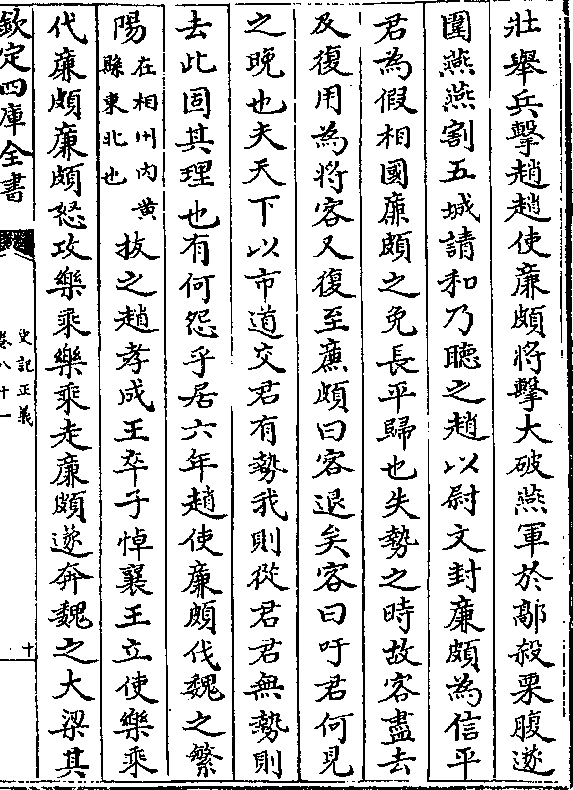 壯舉兵擊趙趙使廉頗將擊大破燕軍於鄗殺栗腹遂
圍燕燕割五城請和乃聽之趙以尉文封廉頗為信平
君為假相國廉頗之免長平歸也失勢之時故客盡去
及復用為將客又復至廉頗曰客退矣客曰吁君何見
之晚也夫天下以市道交君有勢我則從君君無勢則
去此固其理也有何怨乎居六年趙使廉頗伐魏之繁
陽在相州内黄縣東北也拔之趙孝成王卒子悼襄王立使樂乘
代廉頗廉頗怒攻樂乘樂乘走廉頗遂奔魏之大梁其
欽定四庫全書
史記正義
卷八十一
十